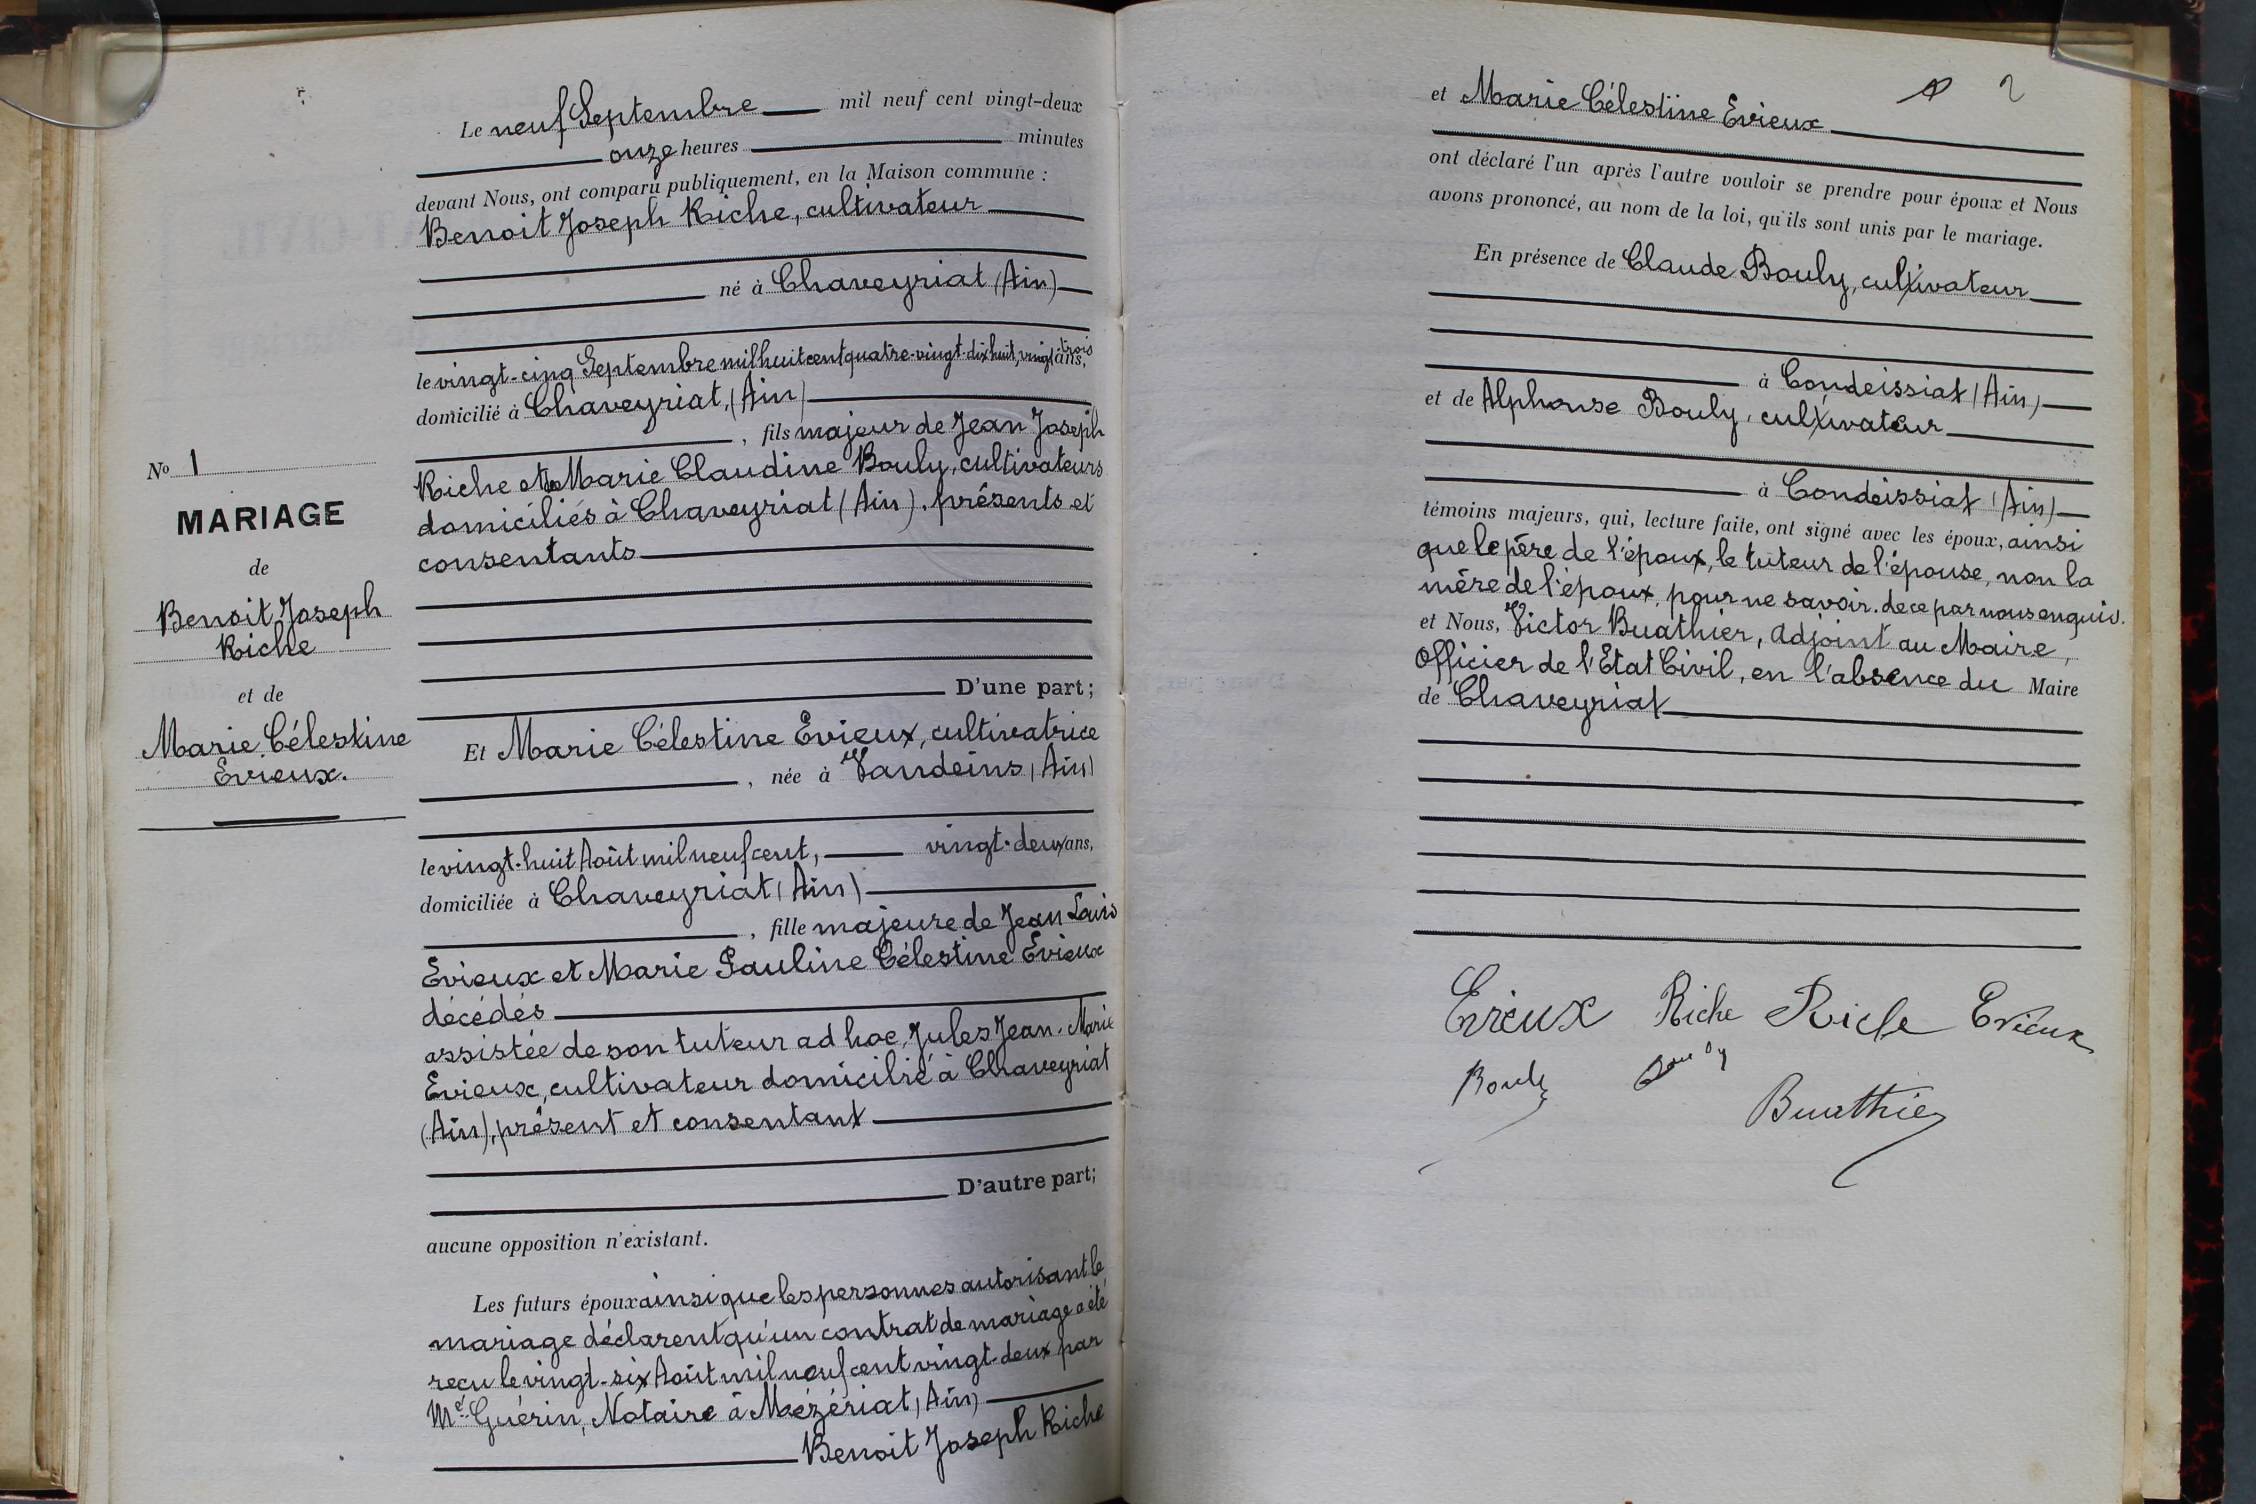 Le neuf Septembre mil neuf cent vingt-deux
onze heures minutes
devant Nous, ont comparu publiquement, en la Maison commune :
Benoit Joseph Riche, cultivateur
né à Chaveyriat (Ain)
le vingt-cinq Septembre mil huit cent quatre-vingt-dix huit, vingt trois ans,
domicilié à Chaveyriat, (Ain)
, fils majeur de Jean Joseph
Riche et de Marie Claudine Bouly, cultivateurs
domiciliés à Chaveyriat (Ain). présents et
consentants
D'une part;
Et Marie Célestine Evieux, cultivatrice
, née à Vandeins (Ain)
le vingt-huit Août mil neuf cent, vingt-deux ans,
domiciliée à Chaveyriat (Ain)
, fille majeure de Jean Louis
Evieux et Marie Pauline Célestine Evieux
décédés
assistée de son tuteur ad hoc, Jules Jean-Marie
Evieux, cultivateur domicilié à Chaveyriat
(Ain), présent et consentant
D'autre part;
aucune opposition n'existant.
Les futurs époux ainsi que les personnes autorisant le
mariage déclarent qu'un contrat de mariage a été
reçu le vingt-six Août mil neuf cent vingt-deux par
Me Guérin, Notaire à Mézériat (Ain)
Benoit Joseph Riche
No 1
MARIAGE
de
Benoit Joseph
Riche
et de
Marie Célestine
Evieux.
2
et Marie Célestine Evieux
ont déclaré l'un après l'autre vouloir se prendre pour époux et Nous
avons prononcé, au nom de la loi, qu'ils sont unis par le mariage.
En présence de Claude Bouly, cultivateur
à Condeissiat (Ain)
et de Alphonse Bouly, cultivateur
à Condeissiat (Ain)
témoins majeurs, qui, lecture faite, ont signé avec les époux, ainsi
que le père de l'époux, le tuteur de l'épouse, non la
mère de l'époux, pour ne savoir. de ce par nous enquis.
et Nous, Victor Buathier, adjoint au Maire,
Officier de l'Etat Civil, en l'absence du Maire
de Chaveyriat
Evieux Riche Riche Evieux
Bouly Bouly
Buathier